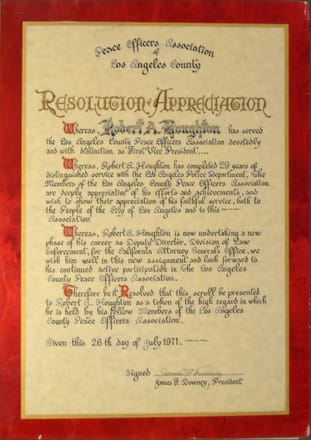 Peace Officers Association
of
Los Angeles County
RESOLUTION of APPRECIATION
Whereas, Robert A. Houghton has served
the Los Angeles County Peace Officers Association devotedly
and with distinction as First Vice President....
Whereas, Robert A. Houghton has completed 29 years of
distinguished service with the Los Angeles Police Department, The
Members of the Los Angeles County Peace Officers Association
are deeply appreciative of his efforts and achievements, and
wish to show their appreciation of his faithful service, both to
the People of the City of Los Angeles and to this
Association
Whereas, Robert A. Houghton is now undertaking a new
phase of his career as Deputy Director, Division of Law
Enforcement, for the California Attorney General's Office, we
wish him well in this new assignment and look forward to
his continued active participation in The Los Angeles
County Peace Officers Association.
Therefore be it Resolved that this scroll be presented
to Robert A. Houghton as a token of the high regard in which
he is held by his fellow Members of the Los Angeles
County Peace Officers Association.
Given this 26th day of July 1971.
Signed
James F. Downey, President